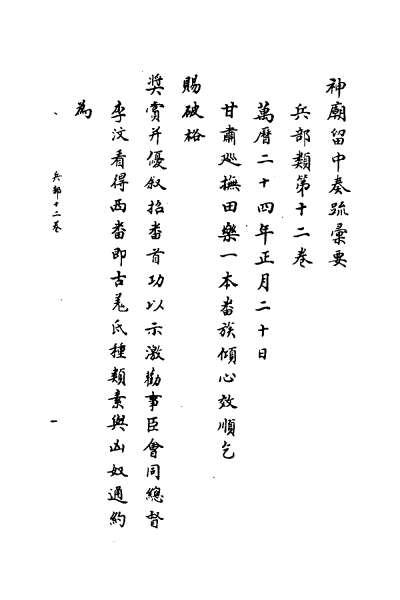 神廟留中奏疏彙要
兵部類第十二卷
萬曆二十四年正月二十日
甘肅廵撫田樂一本畨族傾心效順乞
賜破格
奬賞并優叙招畨首功以示激勸事臣會同總督
李汶看得西畨即古羗氐種類素與凶奴通約
為
兵部十二卷
一